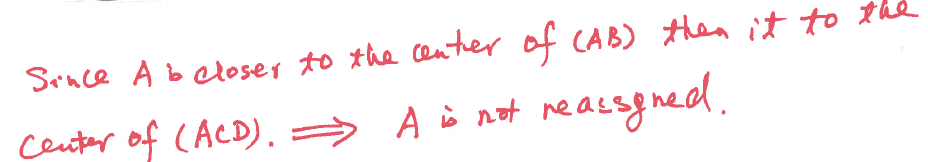 Since A is closer to the center of (AB) then it to the
center of (ACD). ⟹ A is not reassgned.